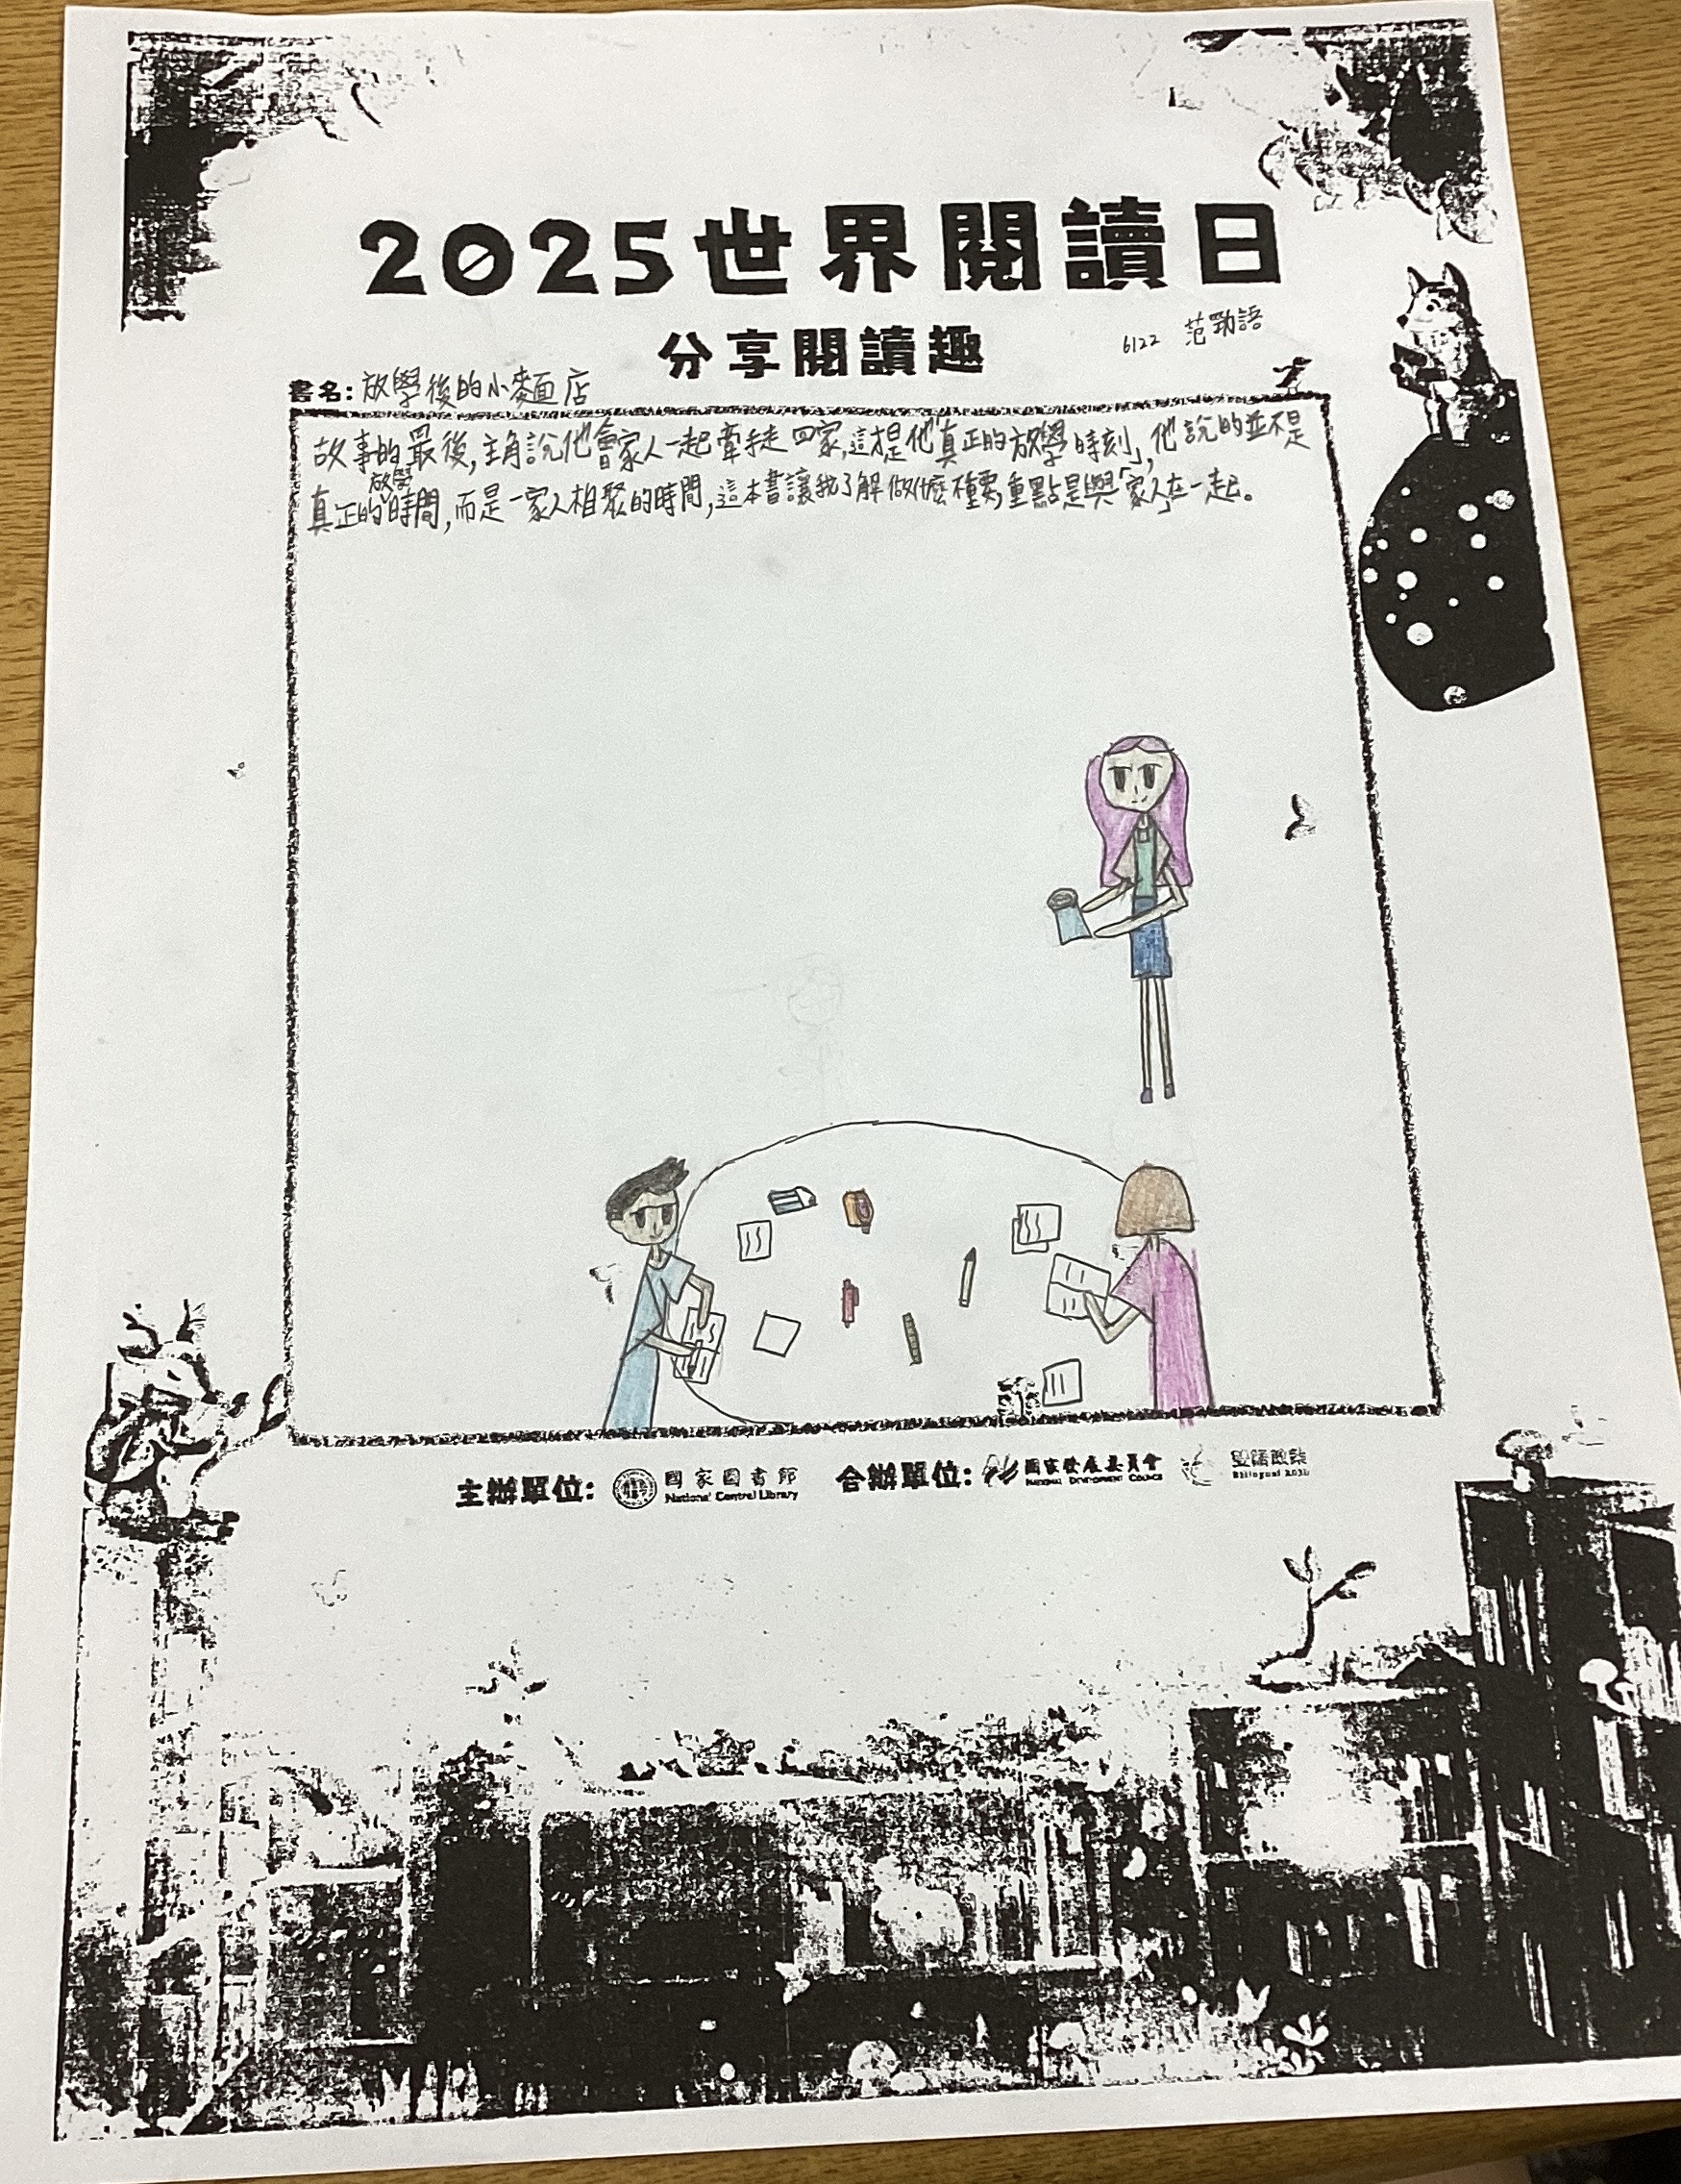 2025世界閱讀日
分享閱讀趣
6122 范勁語
書名: 放學後的小麵店
故事的最後,主角說他會家人一起牽徒回家,這才是他「真正的放學時刻」,他說的並不是
真正的放學時間,而是一家人相聚的時間,這本書讓我了解做什麼不重要,重點是與「家人」在一起。
主辦單位: 國家圖書館 合辦單位: 國家發展委員會 雙語政策
National Central Library NATIONAL DEVELOPMENT COUNCIL Bilingual 2030